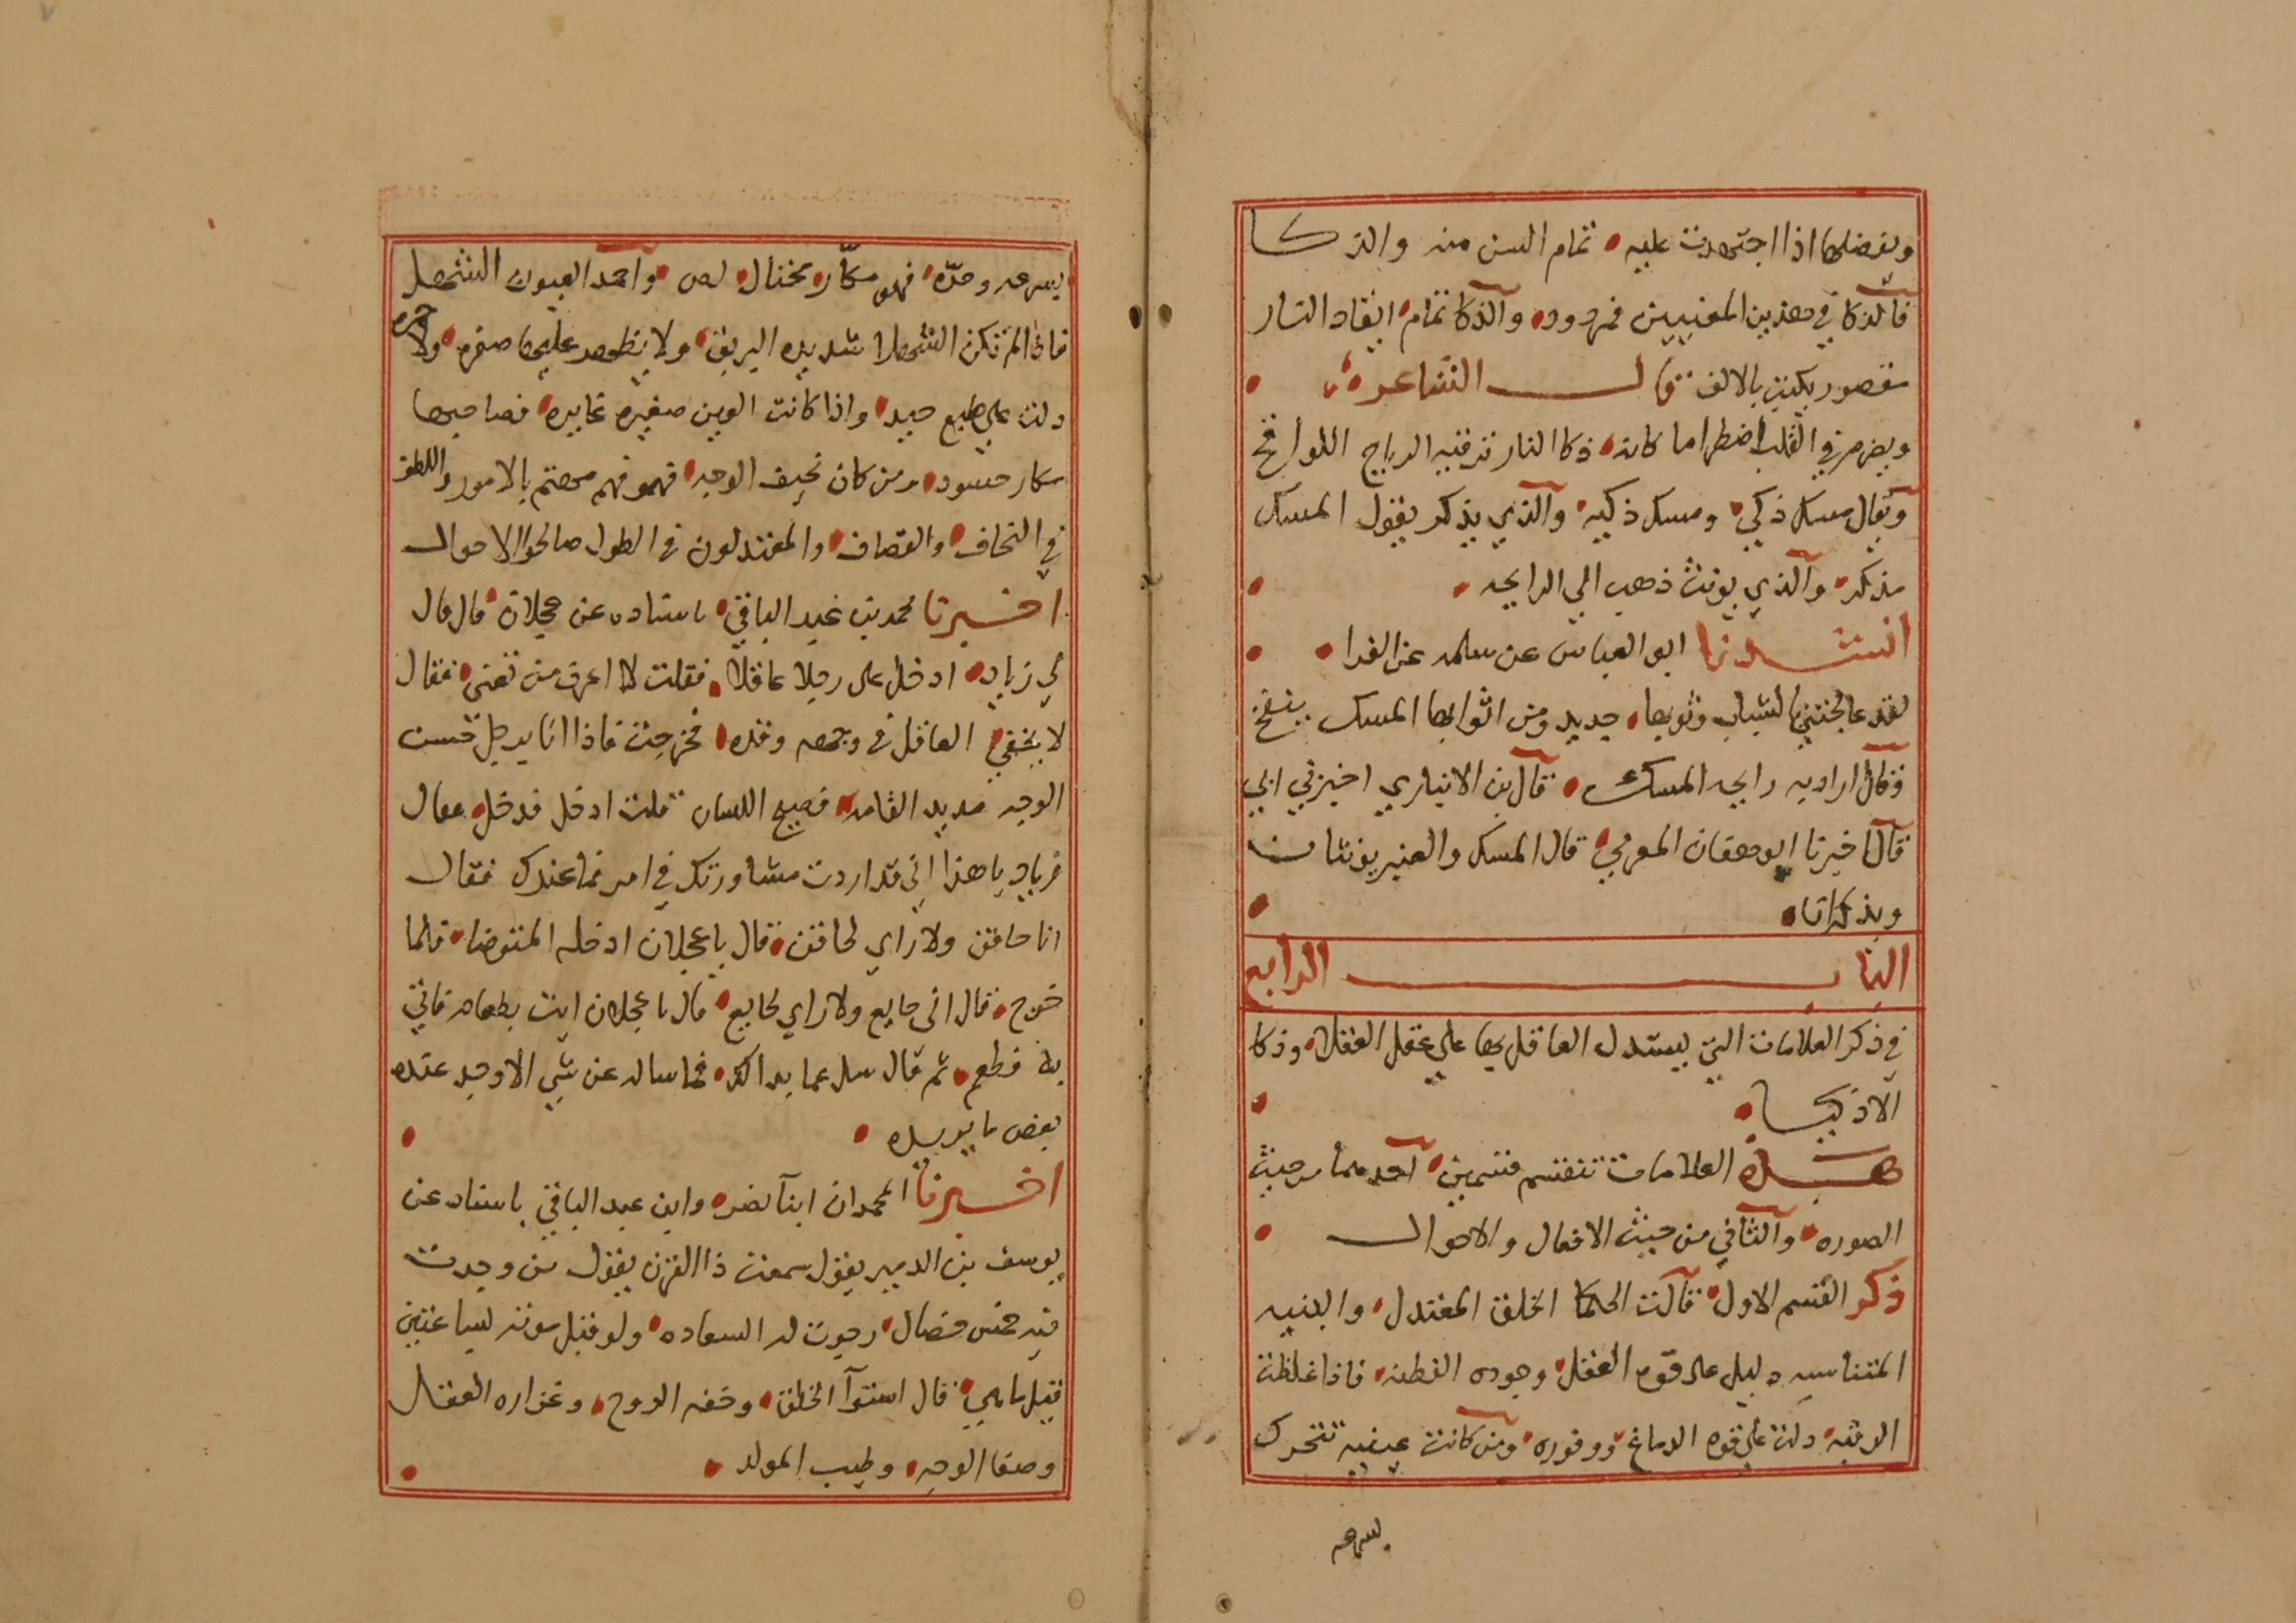 ويفضلها اذا اجتهدت عليه تمام السن منه والذكا
فالذكا في هذين المعنيين ممدود والذكا تمام ايقاد النار
مقصور يكتب بالالف قال الشاعر
ويضرم في القلب اضطراما كانه ذكا النار تزفيه الرياح اللوافح
ويقال مسك ذكي ومسك ذكيه والذي يذكر يقول المسك
مذكر والذي يونث ذهب الي الرايحه
انشدنا ابو العباس عن سلمه عن الفرا
لقد عاجلتني بالسباب وثوبها جديد ومن اثوابها المسك ينفح
فقال اراد به رايحه المسك قال بن الانباري اخبرني ابي
قال اخبرنا ابو هفان المهزمي قال المسك والعنبر يونثان
ويذكران
الباب الرابع
في ذكر العلامات التي يستدل العاقل بها علي عقل العقلا وذكا
الاذكيا
هذه العلامات تنقسم قسمين احدهما من حيث
الصوره والثاني من حيث الافعال والاحوال
ذكر القسم الاول قالت الحكما الخلق المعتدل والبنيه
المتناسبه دليل على قوه العقل وجوده الفطنه فاذا غلظت
الرقبه دلت علي قوه الدماغ ووفوره ومن كانت عينيه تتحرك
بسرعه
بسرعه وحدّه فهو مكّار محتال لص واحمد العيون الشهل
فاذا لم تكن الشهلا شديده البريق ولا يظهر عليها صفره ولا حمره
دلت علي طبع جيد واذا كانت العين صغيره غايره فصاحبها
مكار حسود ومن كان نحيف الوجه فهو فهم مهتم بالامور واللطف
في النحاف والقصاف والمعتدلون في الطول صالحوا الاحوال
اخبرنا محمد بن عبد الباقي باسناده عن عجلان قال قال
لي زياد ادخل على رجلا عاقلا فقلت لا اعرف من تعني فقال
لا يخفي العاقل في وجهه وقده فخرجت فاذا انا برجل حسن
الوجه مديد القامه فصيح اللسان قلت ادخل فدخل فقال
زياد يا هذا اني قد اردت مشاورتك في امر فما عندك فقال
انا حاقن ولا راي لحاقن قال يا عجلان ادخله المتوضا فلما
خرج قال اني جايع ولا راي لجايع قال يا عجلان ايت بطعام فاتي
به فطعم ثم قال سل عما بدا لك فما ساله عن شي الا وجد عنده
بعض ما يريده
اخبرنا المحمدان ابنا نصر وابن عبد الباقي باسناد عن
يوسف بن الدبير يقول سمعت ذا القرن يقول من وجدت
فيه خمس خصال رجوت له السعاده ولو قبل موته بساعتين
قيل ما هي قال استوا الخلق وخفه الروح وغزاره العقل
وصفا الوجه وطيب المولد